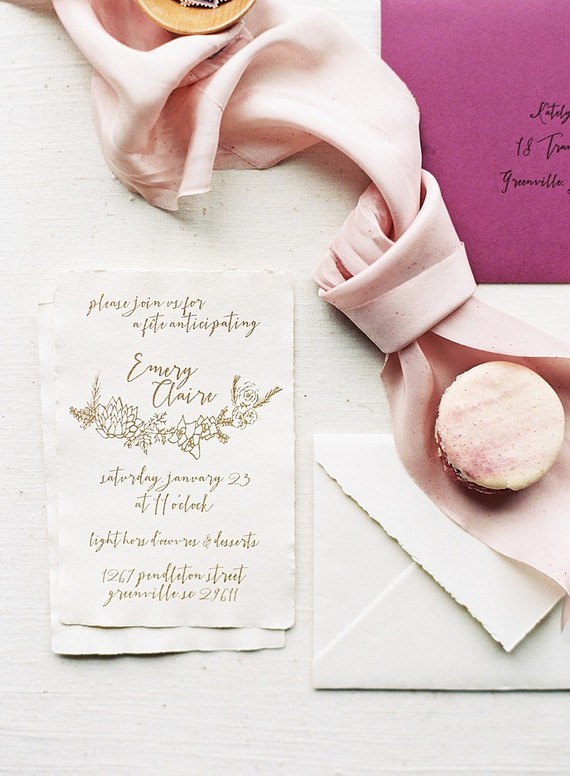 please join us for
a fête anticipating
Emery
Claire
saturday, january 23
at 11 o'clock
light hors d'oeuvres & desserts
1267 pendleton street
greenville, sc 29611
18
Greenville,